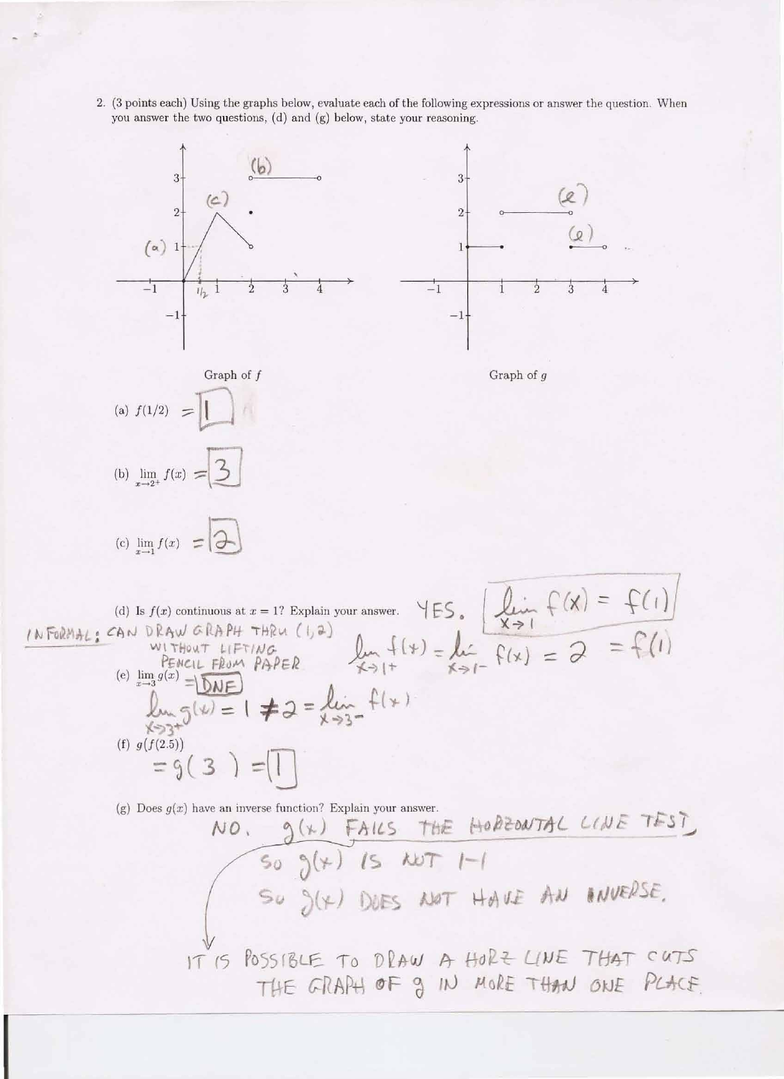 2. (3 points each) Using the graphs below, evaluate each of the following expressions or answer the question. When
you answer the two questions, (d) and (g) below, state your reasoning.
(b)
(c)
(a)
3
2
1
−1
−1
1/2
1
2
3
4
Graph of f
(e)
(e)
3
2
1
−1
−1
1
2
3
4
Graph of g
(a) f(1/2) = 1
(b) lim x→2+ f(x) = 3
(c) lim x→1 f(x) = 2
(d) Is f(x) continuous at x = 1? Explain your answer. YES. lim x→1 f(x) = f(1)
INFORMAL: CAN DRAW GRAPH THRU (1,2)
WITHOUT LIFTING
PENCIL FROM PAPER
lim x→1+ f(x) = lim x→1− f(x) = 2 = f(1)
(e) lim x→3 g(x) = DNE
lim x→3+ g(x) = 1 ≠ 2 = lim x→3− f(x)
(f) g(f(2.5))
= g(3) = 1
(g) Does g(x) have an inverse function? Explain your answer.
NO. g(x) FAILS THE HORZONTAL LINE TEST,
SO g(x) IS NOT 1-1
SO g(x) DOES NOT HAVE AN INVERSE.
IT IS POSSIBLE TO DRAW A HORZ LINE THAT CUTS
THE GRAPH OF g IN MORE THAN ONE PLACE.